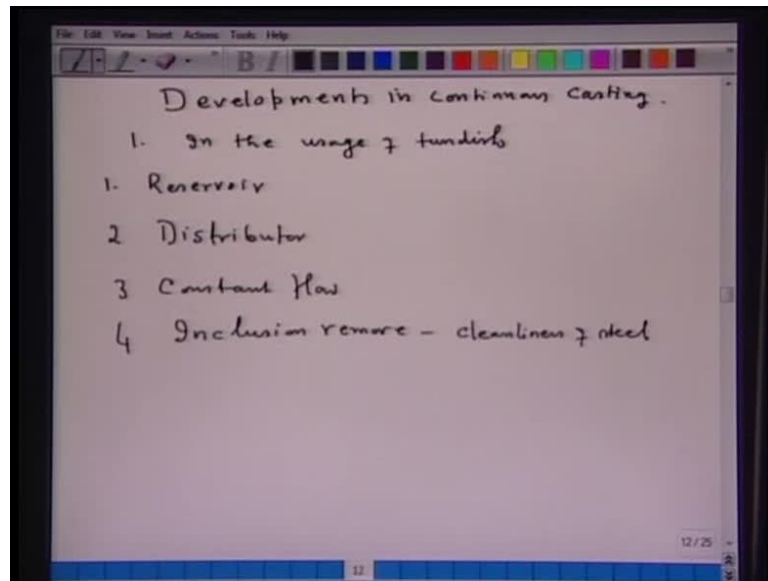 File Edit View Insert Actions Tools Help
B I
Developments in continuous Casting.
1. In the usage of tundish
1. Reservoir
2 Distributor
3 Constant Flow
4 Inclusion remove - cleanliness of steel
12/25
12